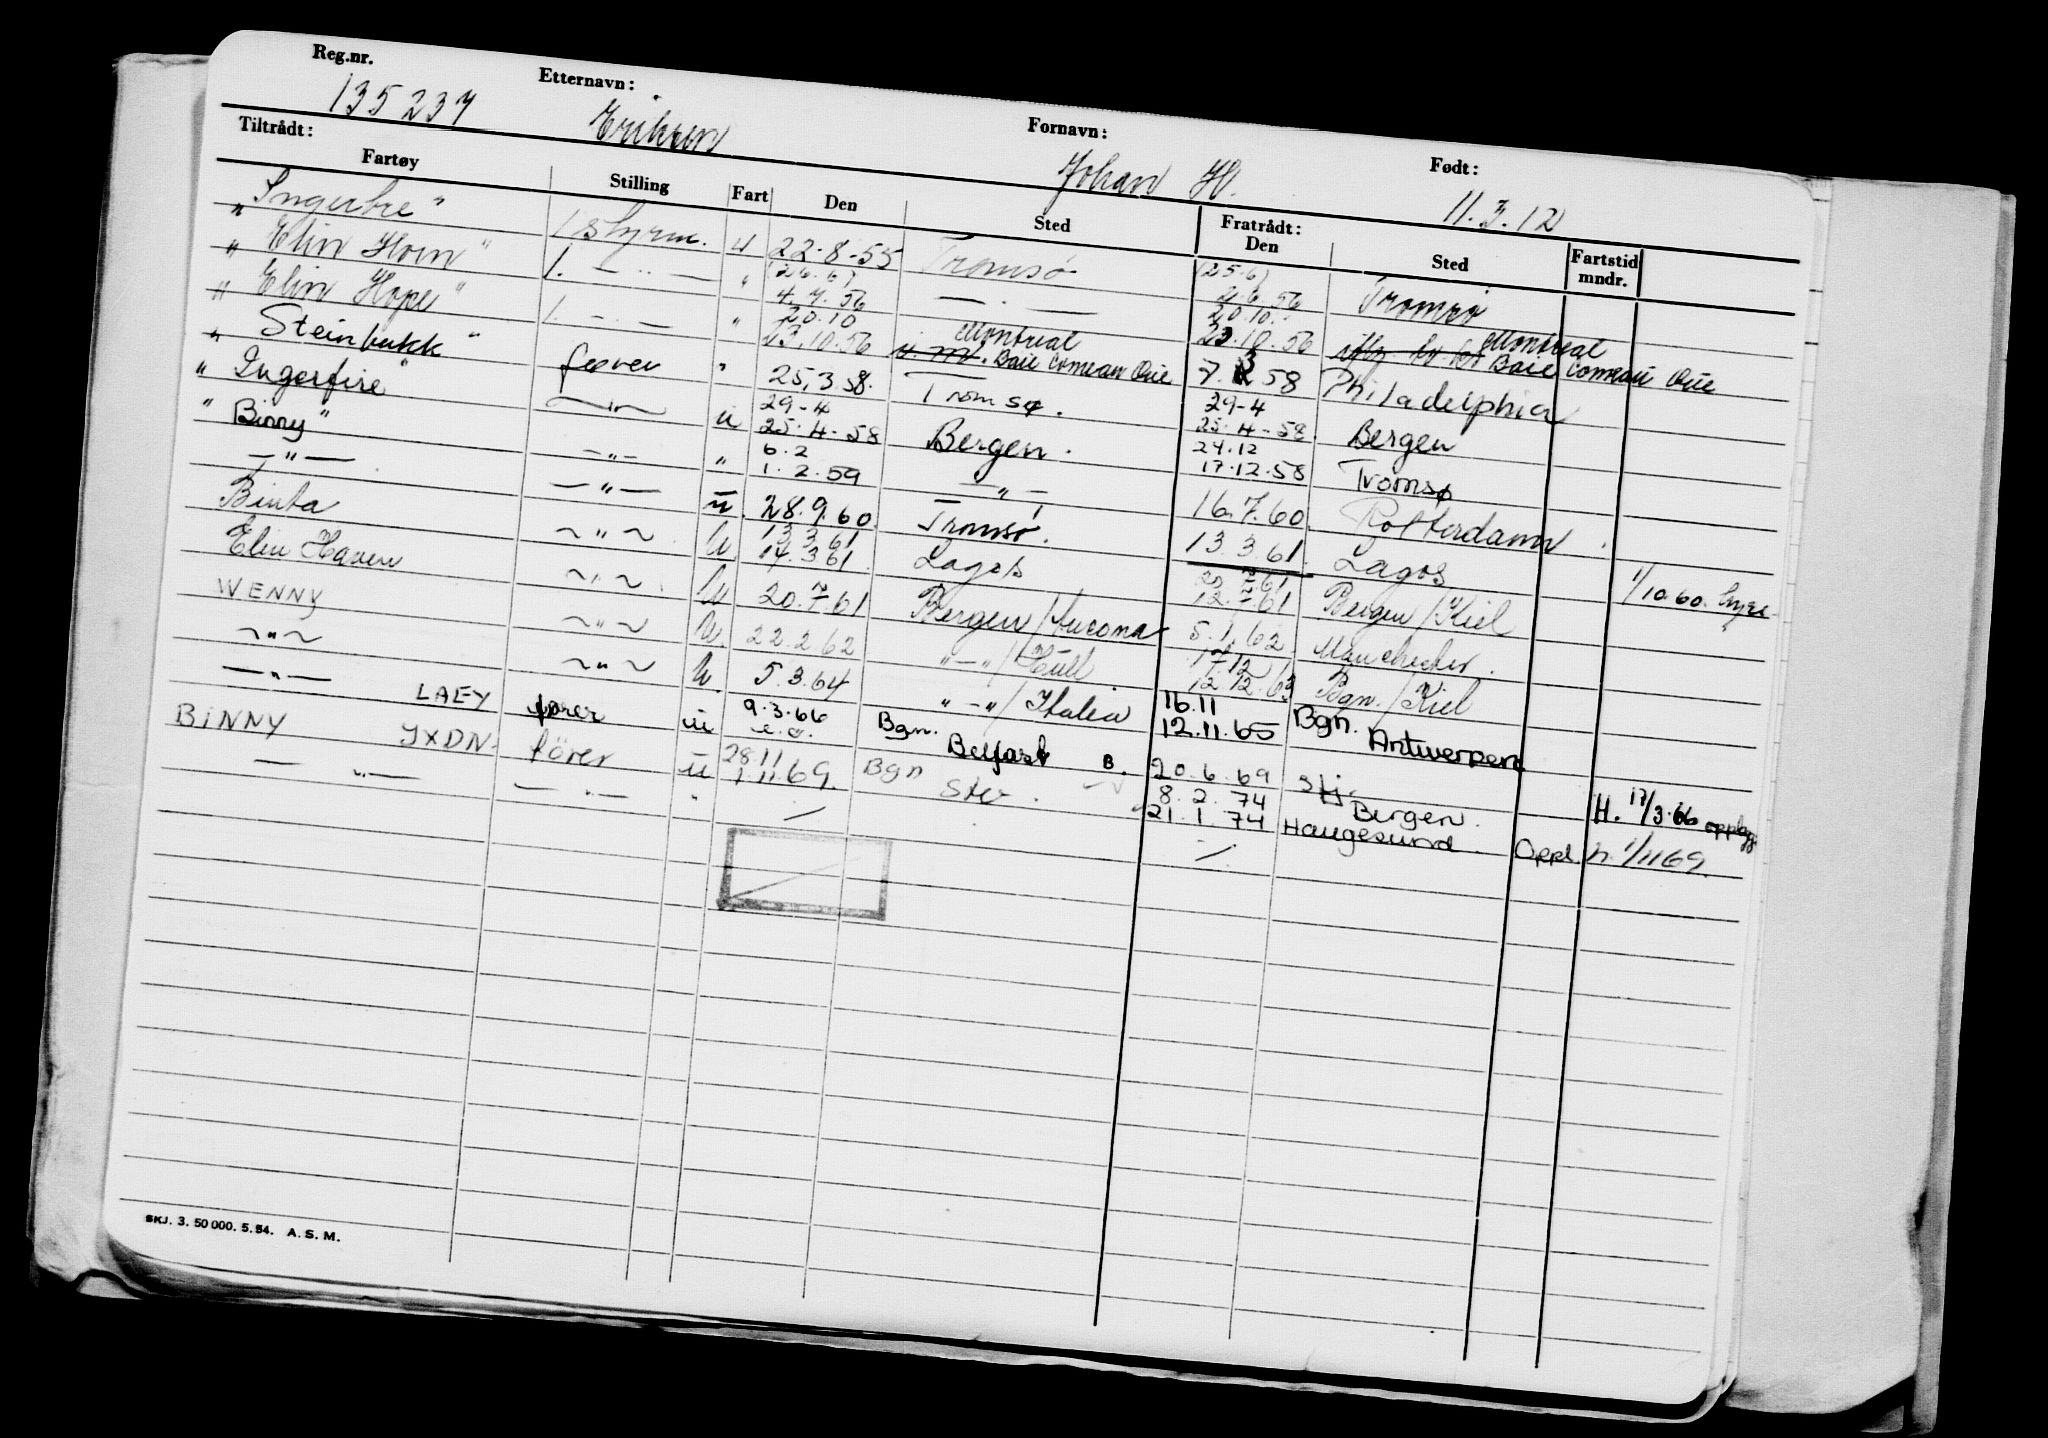 Reg.nr. Etternavn: Fornavn: Født:
135237 Eriksen Johan H. 11.3.12
Tiltrådt: Fratrådt:
Fartøy Stilling Fart Den Sted Den Sted Fartstid mndr.
" " 1 styrm. u 22-8-55 Tromsø (25.6) 2.6.56 Tromsø
" Elin Horn " 1. — " — " (26.6) 4.7.56 — " — 20.10. 23.10.56 Montreal Baie Comeau Que
" Elin Hope " 1. — " — " 20.10 23.10.56 Montreal Baie Comeau Que 7. 58 Philadelphia
" Steinbukk " fører " 25.3 58. Tromsø. 29-4 25.4-58 Bergen
" Ingerfire " — " — u 29-4 25.4-58 Bergen. 24.12 17.12.58 Tromsø
" Binny " — " — " 6.2 1.2.59 — " — 16.7.60 Rotterdam
— " — — " — u. 28.9.60 Tromsø. 13.3.61 Lagos 1/10.60.
Binta ~ " ~ u 13.3.61 14.3.61 Lagos 12.7.61 Bergen/Kiel
Elin Haven ~ " ~ u 20.7.61 Bergen/Ancona 5.1.62 Manchester.
WENNY ~ " ~ u. 22.2.62 " — "/Hull 17.12 12.12.63 Bgn./Kiel
~ " ~ ~ " ~ u. 5.3.64 " — "/Italia 16.11 12.11.65 Bgn. Antwerpen
— " — LAEY fører u 9.3.66 Bgn. Belfast B. 20.6.69 stj. H. 17/3.66
BINNY JXDN fører u 28.11 1.11.69. Bgn 8.2.74 Bergen. Oppl. h. 1/11 69.
— " — — " — " 21.1.74 Haugesund
SKJ. 3. 50 000. 5. 54. A. S. M.